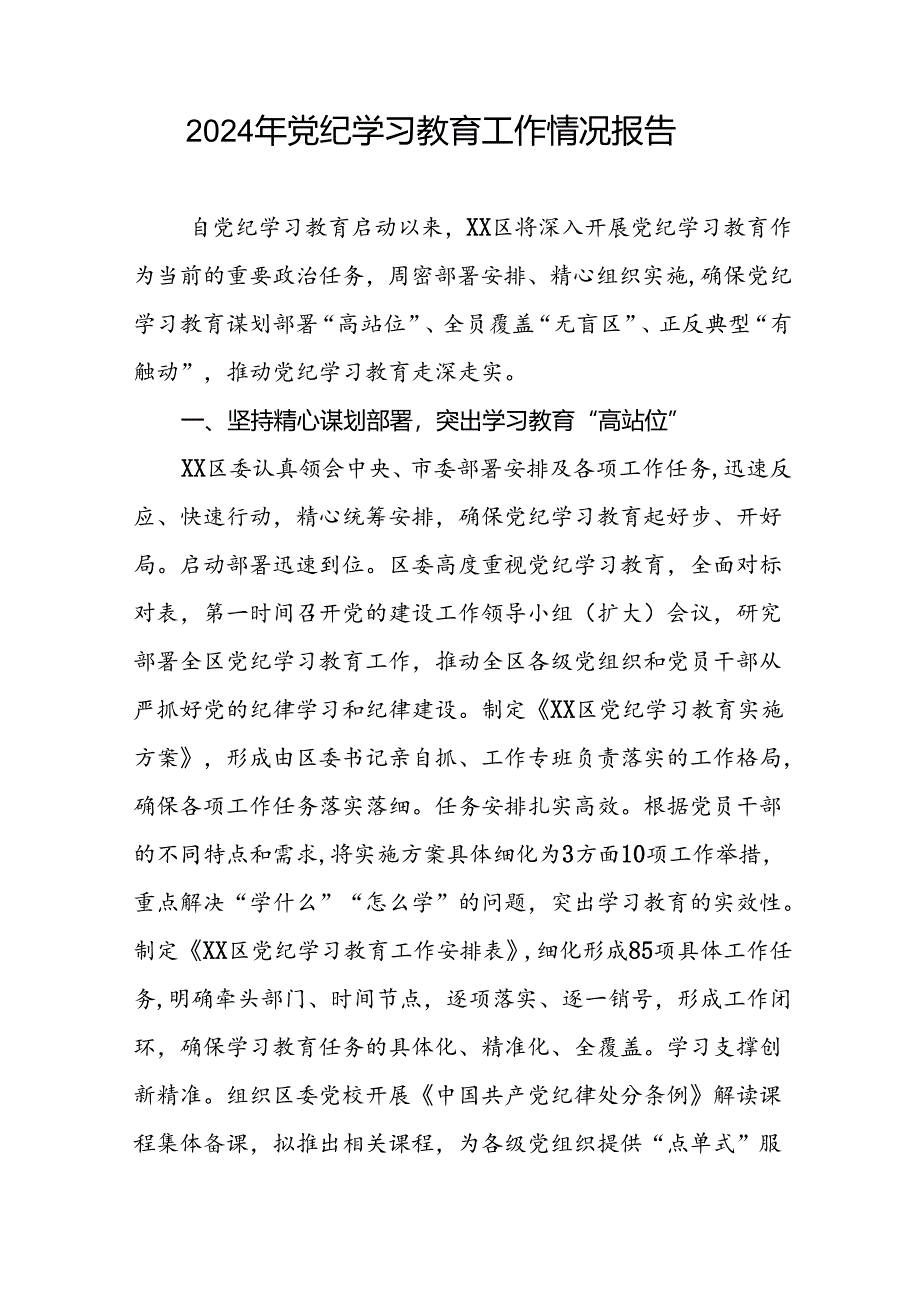 2024年党纪学习教育工作情况报告
自党纪学习教育启动以来，XX区将深入开展党纪学习教育作
为当前的重要政治任务，周密部署安排、精心组织实施,确保党纪
学习教育谋划部署“高站位”、全员覆盖“无盲区”、正反典型“有
触动”，推动党纪学习教育走深走实。
一、坚持精心谋划部署，突出学习教育“高站位”
XX区委认真领会中央、市委部署安排及各项工作任务,迅速反
应、快速行动，精心统筹安排，确保党纪学习教育起好步、开好
局。启动部署迅速到位。区委高度重视党纪学习教育，全面对标
对表，第一时间召开党的建设工作领导小组（扩大）会议，研究
部署全区党纪学习教育工作，推动全区各级党组织和党员干部从
严抓好党的纪律学习和纪律建设。制定《XX区党纪学习教育实施
方案》，形成由区委书记亲自抓、工作专班负责落实的工作格局，
确保各项工作任务落实落细。任务安排扎实高效。根据党员干部
的不同特点和需求,将实施方案具体细化为3方面10项工作举措，
重点解决“学什么”“怎么学”的问题，突出学习教育的实效性。
制定《XX区党纪学习教育工作安排表》,细化形成85项具体工作任
务,明确牵头部门、时间节点，逐项落实、逐一销号，形成工作闭
环，确保学习教育任务的具体化、精准化、全覆盖。学习支撑创
新精准。组织区委党校开展《中国共产党纪律处分条例》解读课
程集体备课，拟推出相关课程，为各级党组织提供“点单式”服